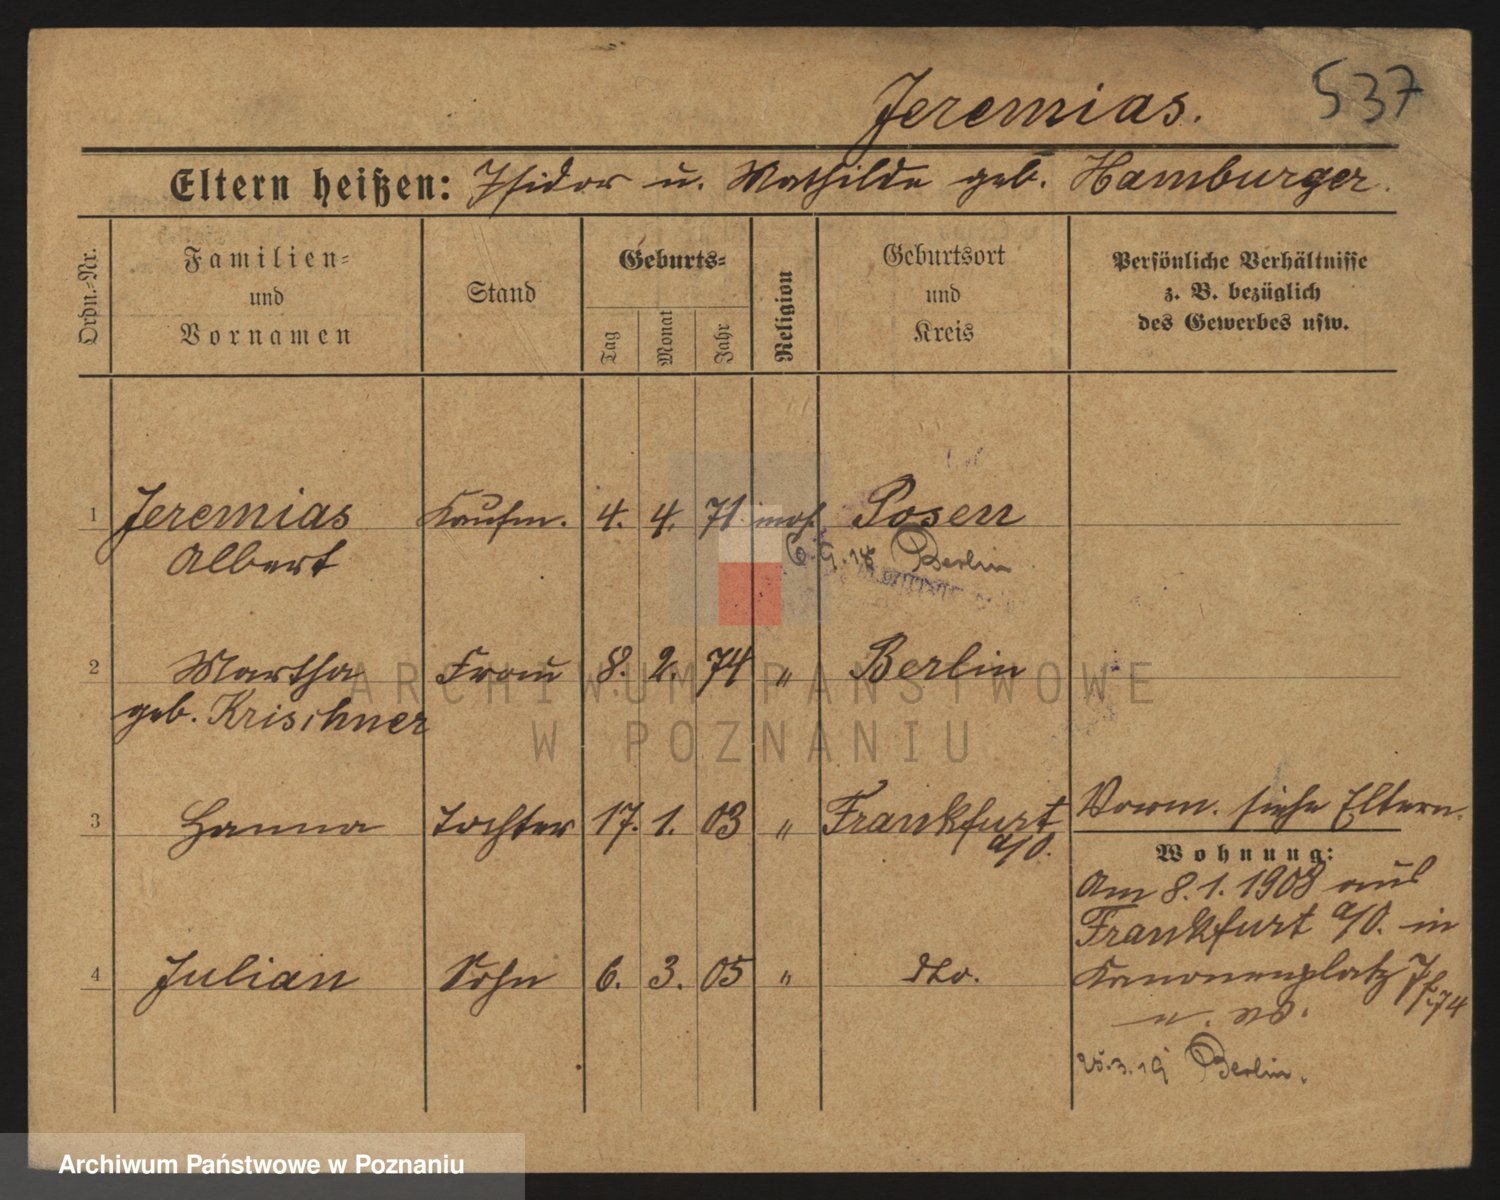 537
Jeremias.
Eltern heißen: Isidor u. Mathilde geb. Hamburger.
Ordn.-Nr.
Familien-
und
Vornamen
Stand
Geburts-
Tag
Monat
Jahr
Religion
Geburtsort
und
Kreis
Persönliche Verhältnisse
z. B. bezüglich
des Gewerbes usw.
1 Jeremias Kaufm. 4. 4. 71. mos. Posen
Albert 6.9.18 Berlin
2 Martha Frau 8. 2. 74 " Berlin
geb. Krischner
3 Hanna Tochter 17. 1. 03 " Frankfurt
a/O.
Vorm. siehe Eltern.
Wohnung:
Am 8.1.1908 aus
Frankfurt a/O. in
4 Julian Sohn 6. 3. 05 " dto.
Kanonenplatz 7
25.3.19 Berlin.
ARCHIWUM PAŃSTWOWE
W POZNANIU
Archiwum Państwowe w Poznaniu